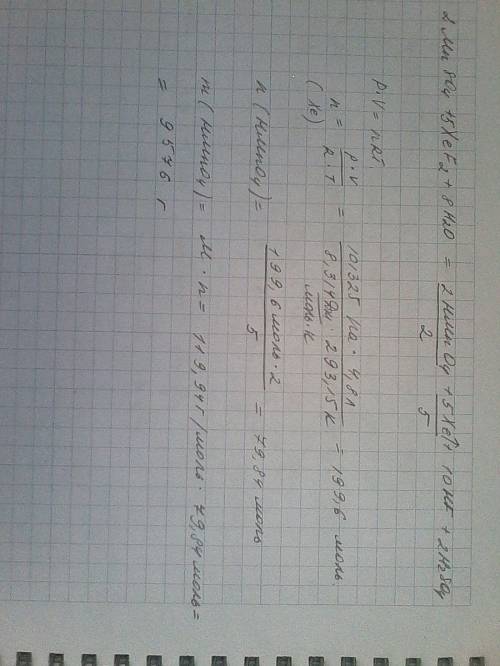 2 MnSO4 + 5XeF2 + 8H2O = 2HMnO4 + 5Xe↑ + 10HF + 2H2SO4
2 5
p·V = nRT
n (Xe) = p·V / R·T = 101325 Па · 4,8 л / 8,314 Дж/моль·К · 293,15 К = 199,6 моль
n (HMnO4) = 199,6 моль · 2 / 5 = 79,84 моль
m (HMnO4) = M · n = 119,94 г/моль · 79,84 моль =
= 9576 г